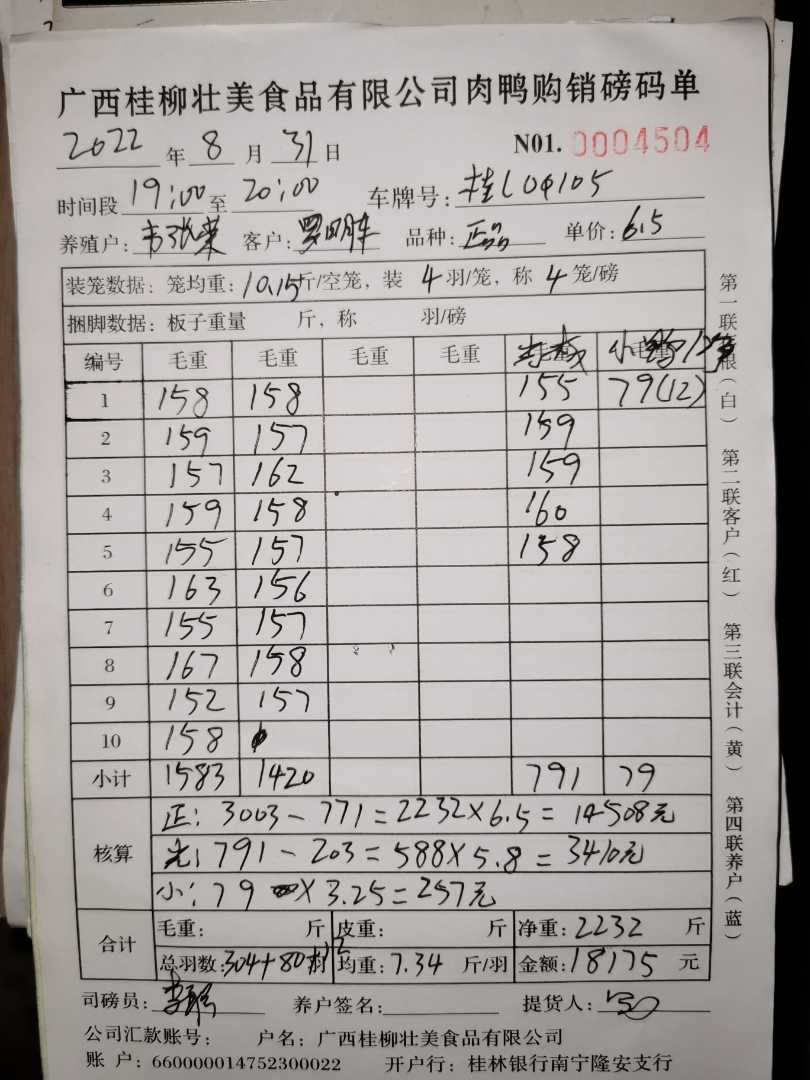 广西桂柳壮美食品有限公司肉鸭购销磅码单
2022 年 8 月 31 日 N01. 0004504
时间段 19:00 至 20:00 车牌号: 桂L04105
养殖户: 客户: 品种: 正品 单价: 6.5
装笼数据: 笼均重: 10.15斤/空笼, 装 4 羽/笼, 称 4 笼/磅
捆脚数据: 板子重量 斤, 称 羽/磅
编号 毛重 毛重 毛重 毛重 毛重 小鸭12只
1 158 158 155 79(12)
2 159 157 159
3 157 162 159
4 159 158 160
5 155 157 158
6 163 156
7 155 157
8 167 158
9 152 157
10 158
小计 1583 1420 791 79
核算
正: 3003 - 771 = 2232 × 6.5 = 14508元
光: 791 - 203 = 588 × 5.8 = 3410元
小: 79 × 3.25 = 257元
合计
毛重: 斤 皮重: 斤 净重: 2232 斤
总羽数: 304+80+12 羽 均重: 7.34 斤/羽 金额: 18175 元
司磅员: 养户签名: 提货人:
公司汇款账号: 户名: 广西桂柳壮美食品有限公司
账 户: 660000014752300022 开户行: 桂林银行南宁隆安支行
第一联存根(白) 第二联客户(红) 第三联会计(黄) 第四联养户(蓝)